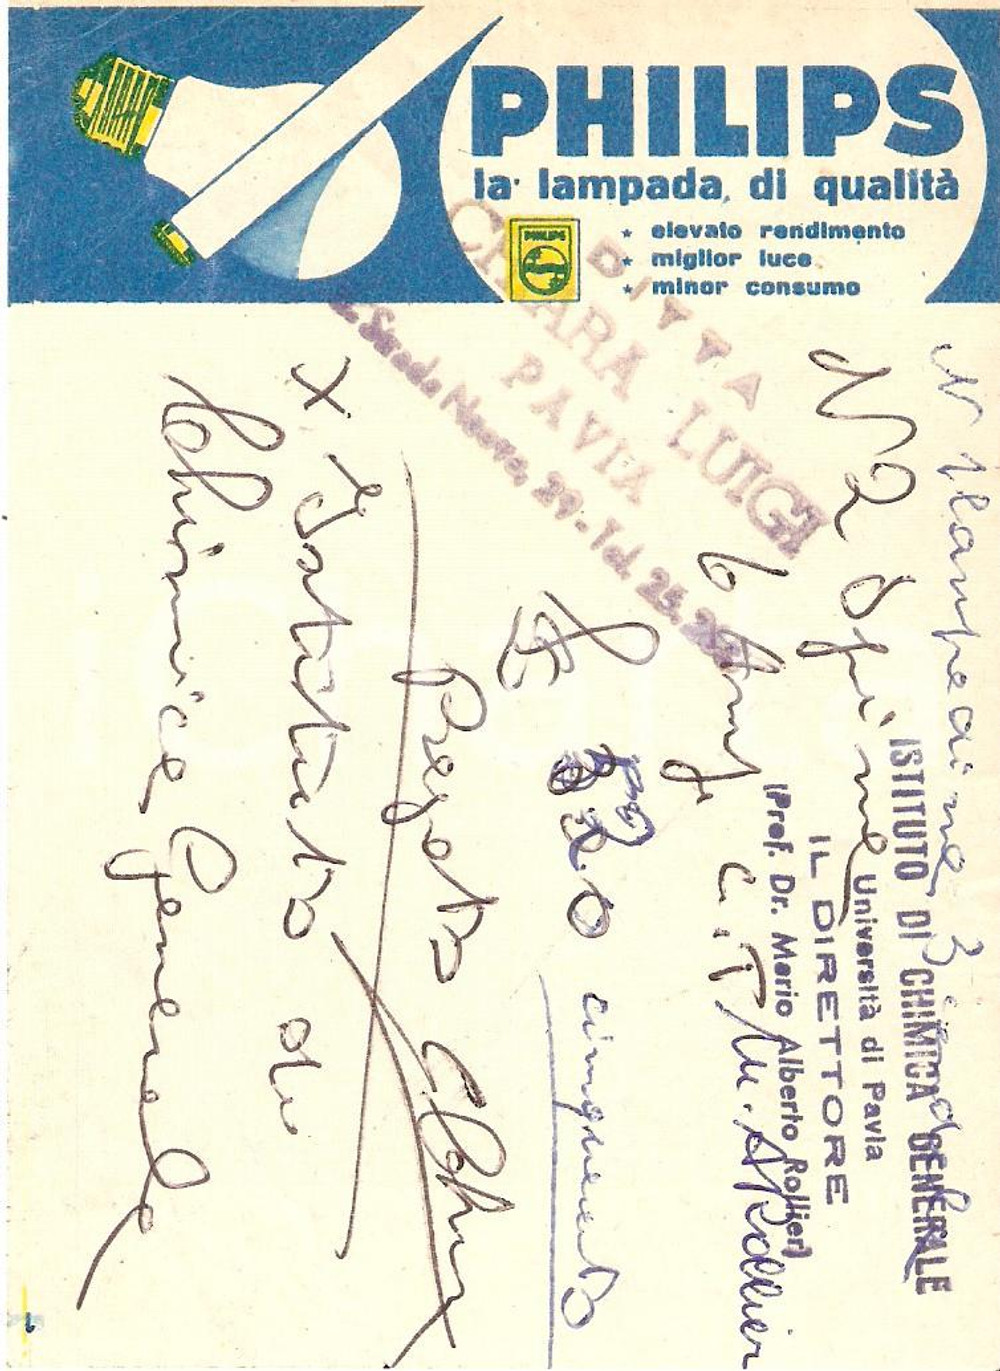 PHILIPS
la lampada di qualità
PHILIPS
★ elevato rendimento
★ miglior luce
★ minor consumo
DITTA
CHIARA LUIGI
PAVIA
Strada Nuova, 29 - Tel. 25.
N 1 lampadine 3 candele
N 2 Spine
6 Amp
£ cinquecento
Pagato Chiara
x Istituto di
Chimica Generale
ISTITUTO DI CHIMICA GENERALE
Università di Pavia
IL DIRETTORE
(Prof. Dr. Mario Alberto Rollier)
M. A. Rollier